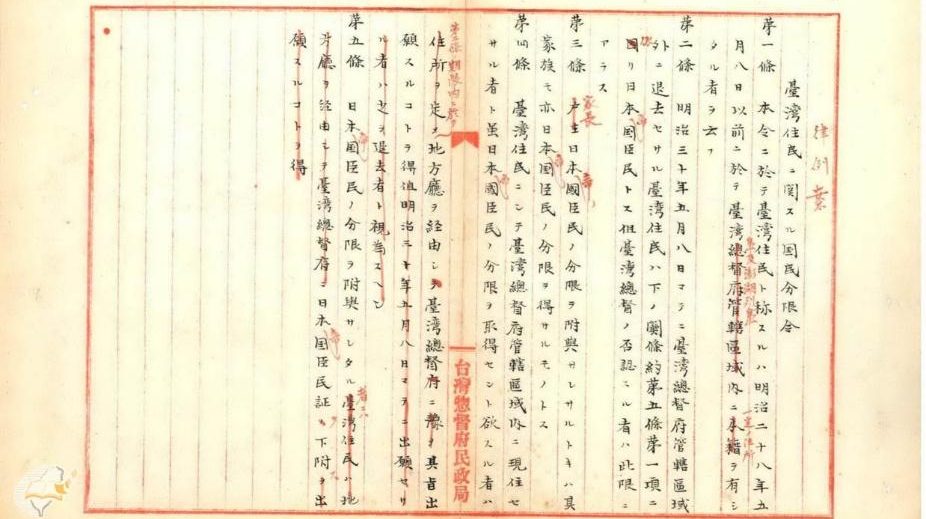 律例案
臺灣住民ニ関スル国民分限令
第一條　本令ニ於テ臺灣住民ト称スルハ明治二十八年五
月八日以前ニ於テ臺灣總督府管轄區域内ニ本籍ヲ有シ
島及澎湖列島
一定ノ住所
タル者ヲ云フ
第二條　明治三十年五月八日マテニ臺灣總督府管轄區域
外ニ退去セサル臺灣住民ハ下ノ関條約第五條第一項ニ
因リ日本國臣民トス但臺灣總督ノ否認ニル者ハ此限ニ
依
帝
アラス
第三條　戸主日本國臣民ノ分限ヲ附與サレサルトキハ其
家長
帝
家族モ亦日本国臣民ノ分限ヲ得サルモノトス
帝
第四條　臺灣住民ニシテ臺灣總督府管轄區域内ニ現住セ
サル者ト虽日本國臣民ノ分限ヲ取得セント欲スル者ハ
帝
第二條期限内ニ
台灣總督府民政局
住所ヲ定メ地方廳ヲ経由シテ臺灣總督府ニ豫メ其旨出
願スルコトヲ得但明治三十年五月八日マテニ出願セサ
ル者ハ之ヲ退去者ト視為スヘシ
第五條　日本国臣民ノ分限ヲ附與サレタル臺灣住民ハ地
帝
者ハ
方廳ヲ経由シテ臺灣總督府ニ日本国臣民証ノ下附ヲ出
帝
願スルコトヲ得